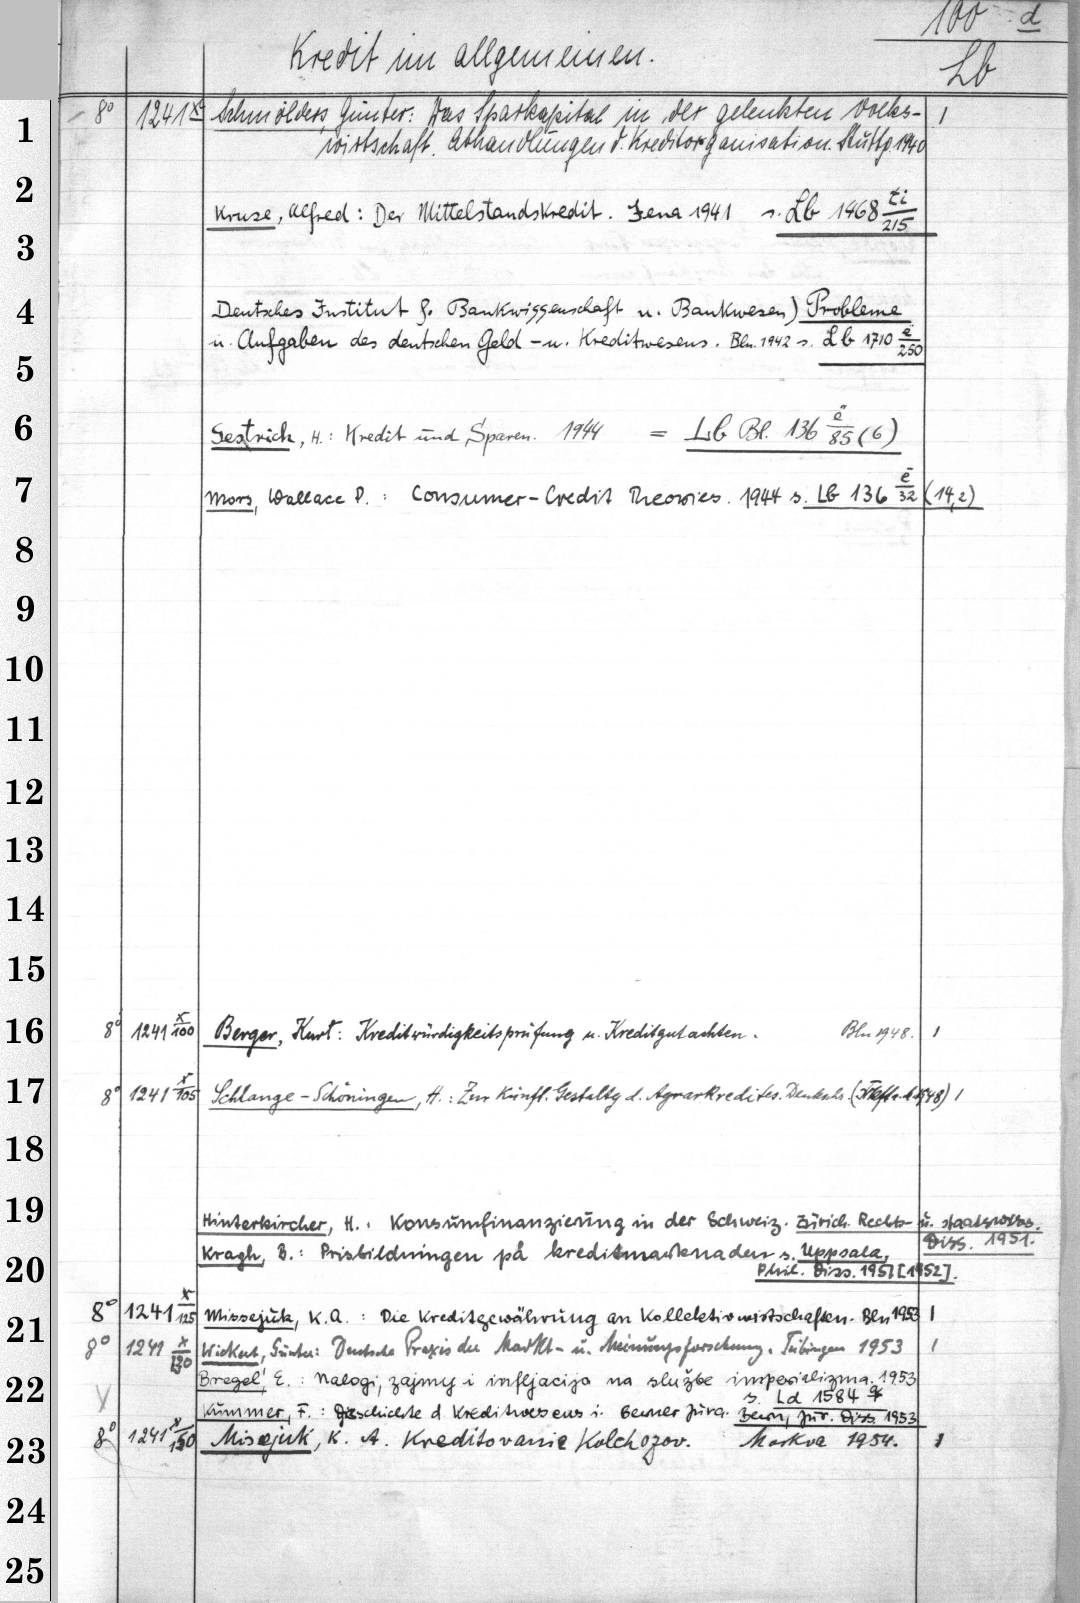 100 d
Lb
Kredit im allgemeinen.
1 8° 1241 x Schmölders, Günter: Das Sparkapital in der gelenkten Volks- 1
wirtschaft. Abhandlungen d. Kreditorganisation. Stuttg. 1940
2 Kruse, Alfred: Der Mittelstandskredit. Jena 1941 s. Lb 1468 ti/215
3
4 Deutsches Institut f. Bankwissenschaft u. Bankwesen) Probleme
u. Aufgaben des deutschen Geld- u. Kreditwesens. Bln. 1942 s. Lb 1710 e/250
5
6 Gestrich, H.: Kredit und Sparen. 1944 = Lb Bl. 136 ë/85 (6)
7 Mors, Wallace P.: Consumer-Credit Theories. 1944 s. Lb 136 ē/32 (14,2)
8
9
10
11
12
13
14
15
16 8° 1241 x/100 Berger, Kurt: Kreditwürdigkeitsprüfung u. Kreditgutachten. Bln 1948. 1
17 8° 1241 x/105 Schlange-Schöningen, H.: Zur künft. Gestaltg d. Agrarkredites. 1948) 1
18
19 Hinterkircher, H.: Konsumfinanzierung in der Schweiz. Zürich. Rechts- u. staatswiss.
Diss. 1951.
20 Kragh, B.: Prisbildningen på kreditmarknaden s. Uppsala,
Phil. Diss. 1951 [1952].
21 8° 1241 x/125 Missejuk, K.A.: Die Kreditgewährung an Kollektivwirtschaften. Bln 1953 1
8° 1241 x/130 Wickert, Günter: Deutsche Praxis der Markt- u. Meinungsforschung. Tübingen 1953 1
22 Bregel', E.: Nalogi, zajmy i infljacija na službe imperializma. 1953
s. Ld 1584
Kummer, F.: Geschichte d. Kreditwesens i. Berner Jura. Bern, Jur. Diss. 1953
23 8° 1241 x/150 Misejuk, K. A. Kreditovanie Kolchozov. Moskva 1954. 1
24
25